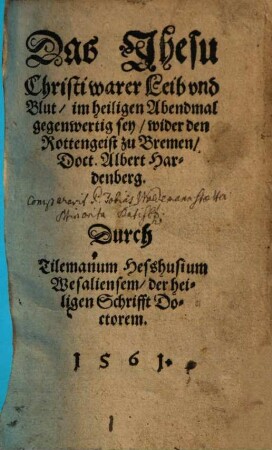 Das Jhesu
Christi warer Leib vnd
Blut / im heiligen Abendmal
gegenwertig sey / wider den
Rottengeist zu Bremen /
Doct. Albert Har-
denberg.
Comparavit
Durch
Tilemanum Hesshusium
Wesaliensem / der hei-
ligen Schrifft Do-
ctorem.
1561.